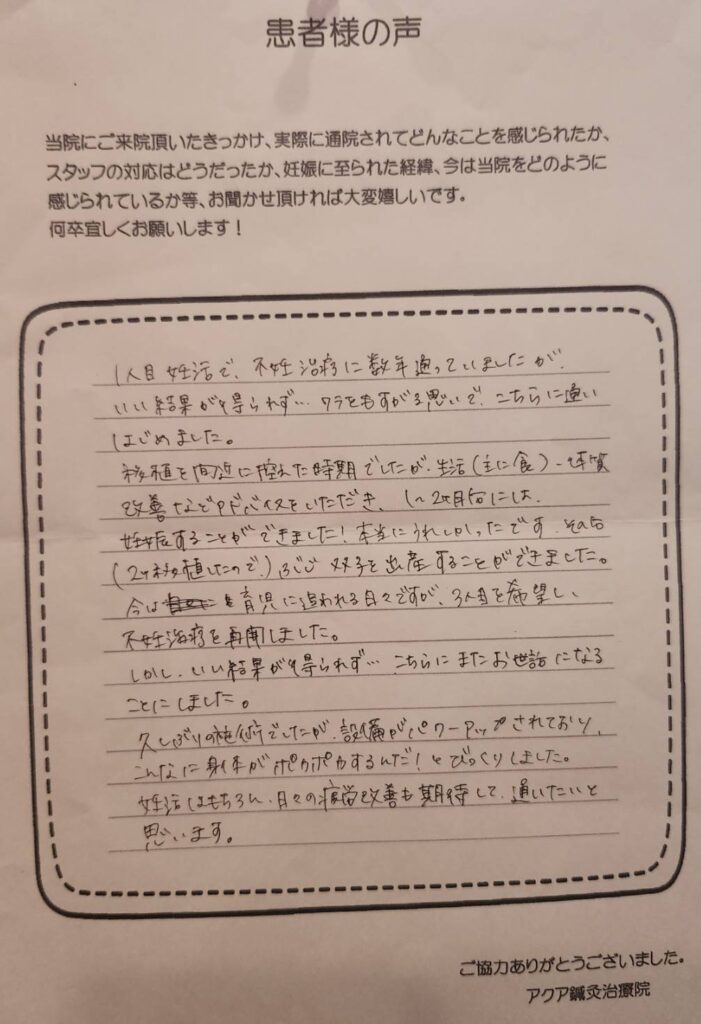 患者様の声
当院にご来院頂いたきっかけ、実際に通院されてどんなことを感じられたか、
スタッフの対応はどうだったか、妊娠に至られた経緯、今は当院をどのように
感じられているか等、お聞かせ頂ければ大変嬉しいです。
何卒宜しくお願いします！
1人目妊活で、不妊治療に数年通っていましたが、
いい結果が得られず… ワラをもすがる思いで、こちらに通い
はじめました。
移植を間近に控えた時期でしたが、生活(主に食)・体質
改善などアドバイスをいただき、1〜2ヶ月後には、
妊娠することができました！本当にうれしかったです。その後
(2ヶ移植したので)ぶじ双子を出産することができました。
今は育児に追われる日々ですが、3人目を希望し、
不妊治療を再開しました。
しかし、いい結果が得られず… こちらにまたお世話になる
ことにしました。
久しぶりの施術でしたが、設備がパワーアップされており、
こんなに身体がポカポカするんだ！とびっくりしました。
妊活はもちろん、日々の疲労改善も期待して、通いたいと
思います。
ご協力ありがとうございました。
アクア鍼灸治療院